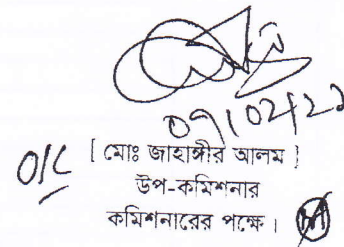 ০৭/০২/২২
O/C [ মোঃ জাহাঙ্গীর আলম ]
উপ-কমিশনার
কমিশনারের পক্ষে।